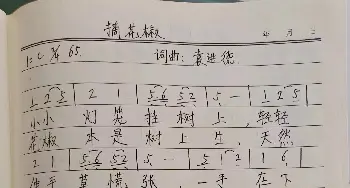 摘花椒
年 月 日
1=C 2/4 65
词曲:袁进德
1 2 5 | 2 1 | 5 6 5 2 | 5 - | 1 2 5
小小 灯笼 挂树上, 轻轻
花椒 本是 树上生, 天然
2 1 | 5 6 5 2 | 5 - | 5 1 2 | 1 6
伸手 莫慌张, 一手 在下